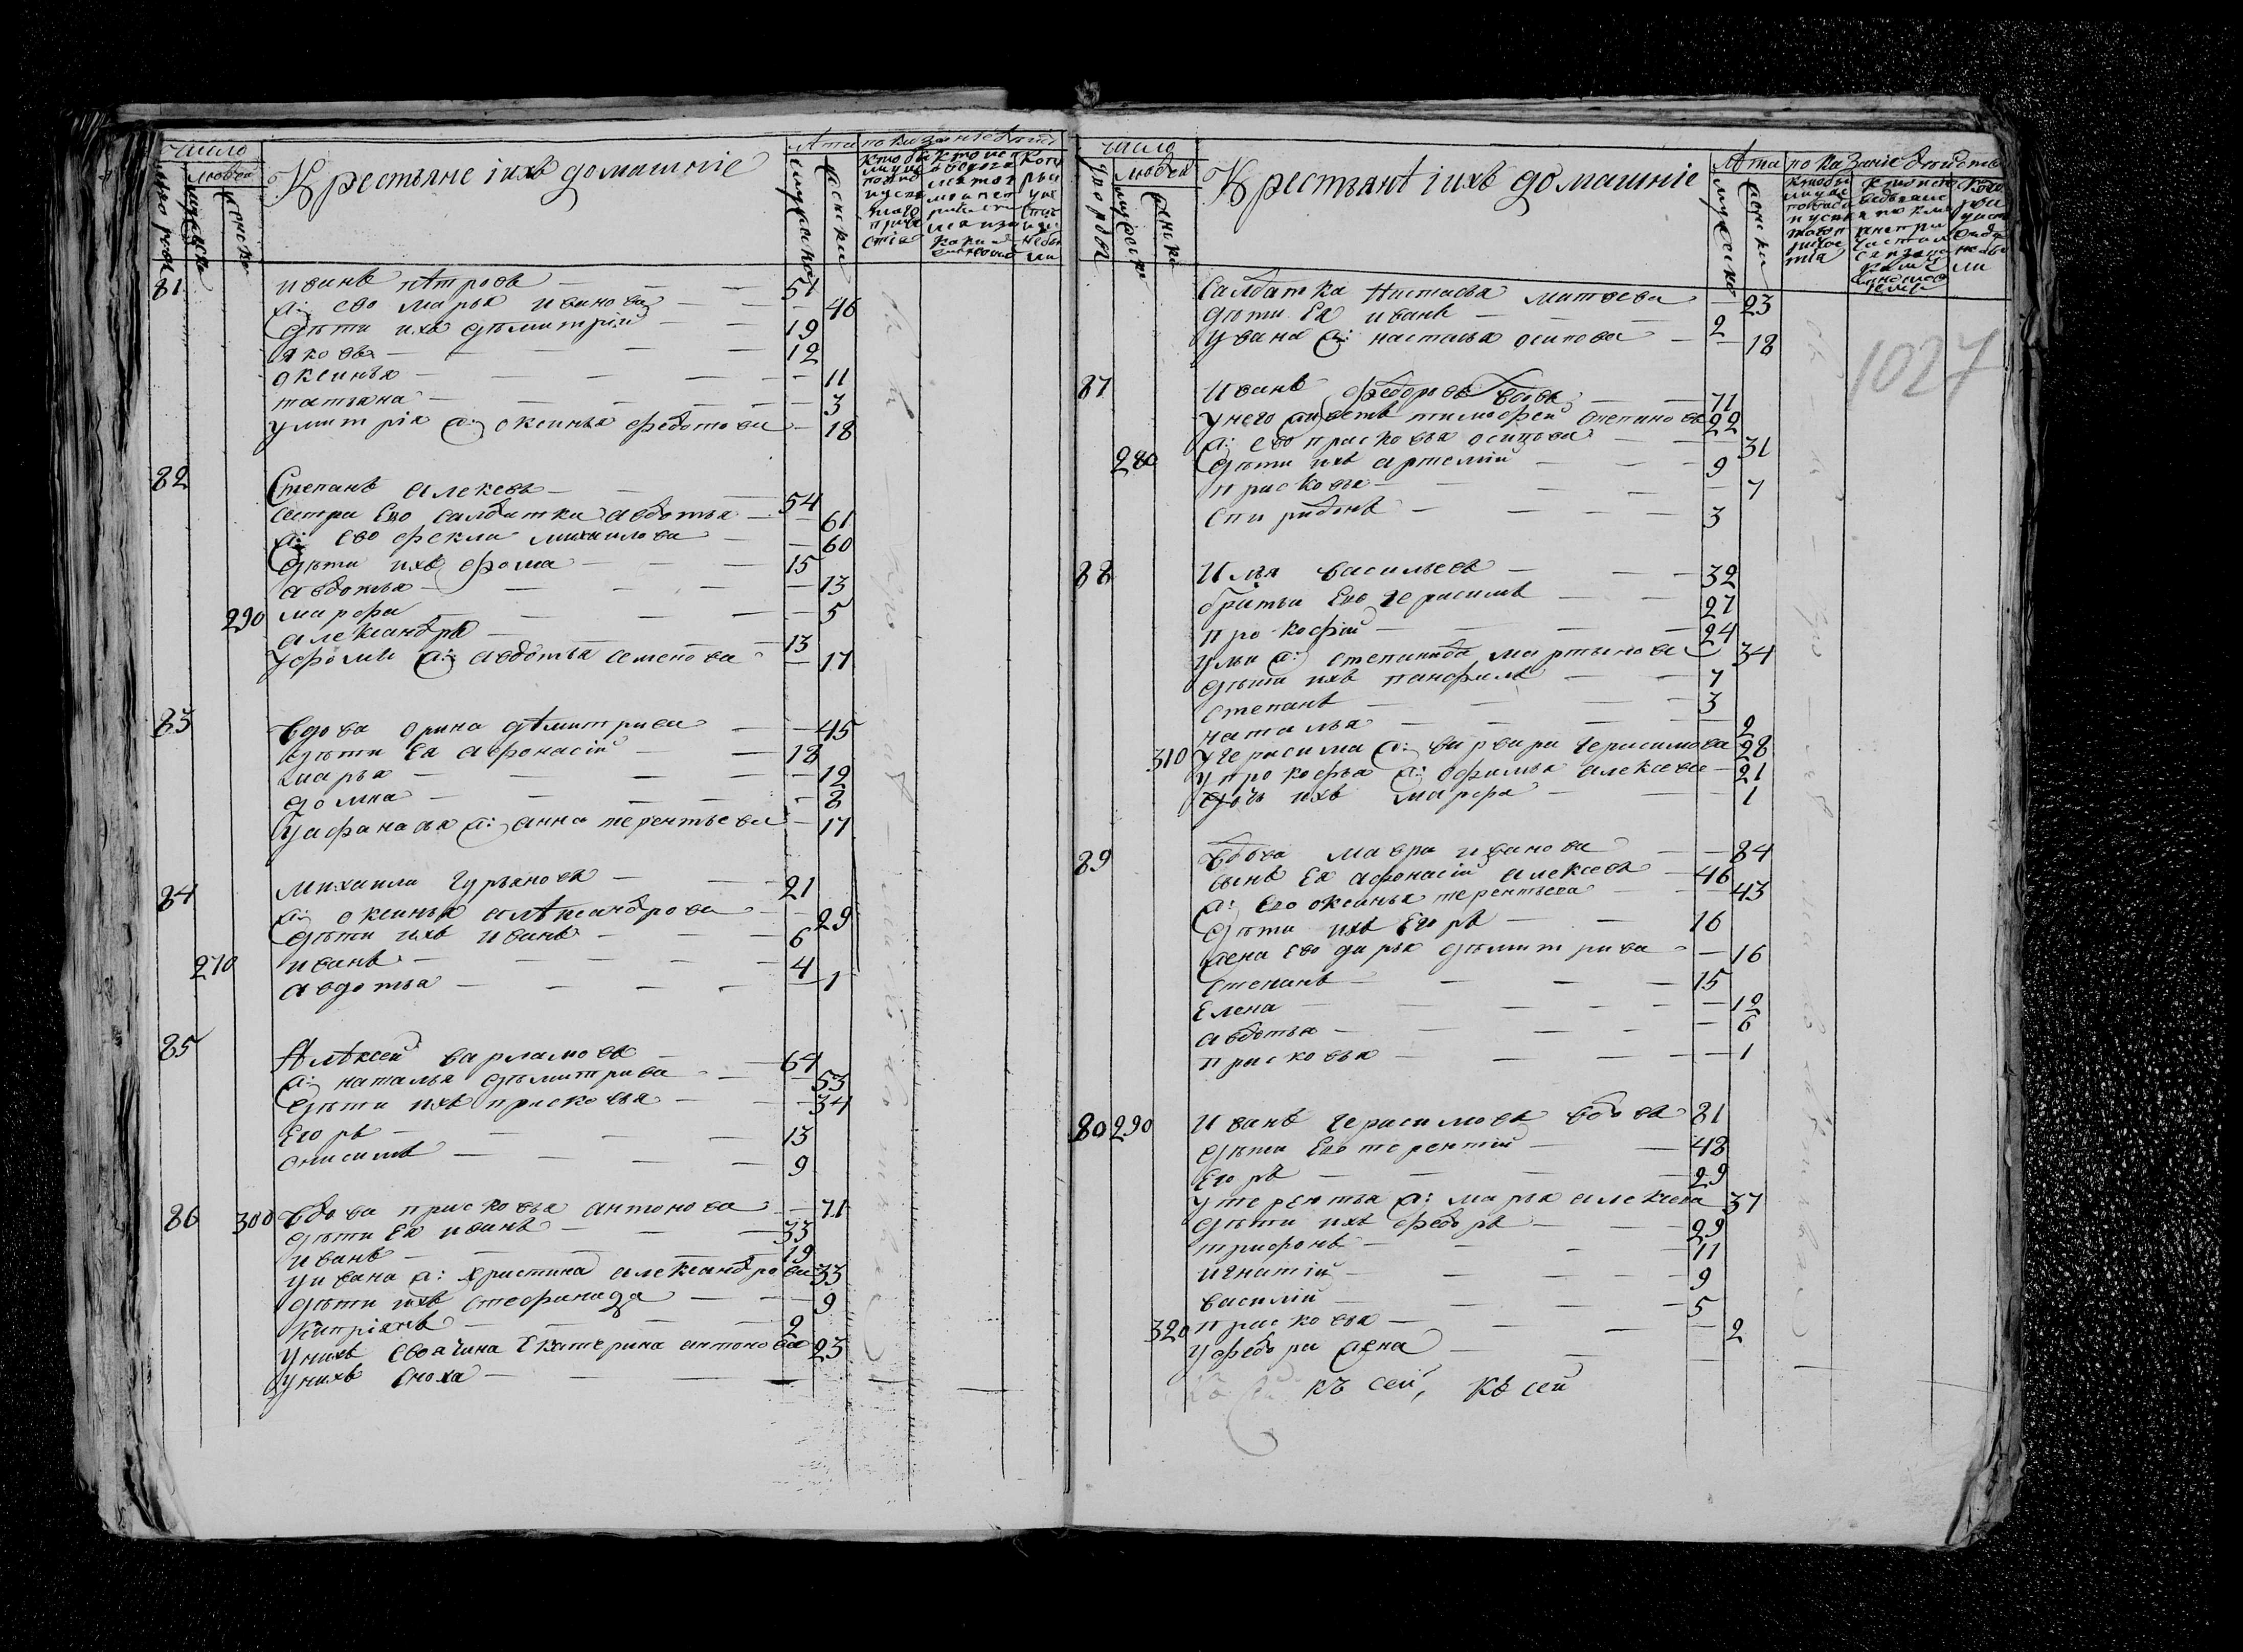 число
людей
Крестьяне iихъ домашнiе
лѣта
мужеска
женска
81 иванъ пѣтровъ — — — 51
ж: ево марья иванова — — 46
дѣти ихъ дѣмитрiй — — 19
яковъ — — — — 12
оксинья — — — — 11
татьяна — — — — 3
умитрiя ж: оксинья федотова — 18
82 Степанъ алексевъ — — — 54
сестра Ево салдатка авдотья — 61
ж: ево фекла михаилова — — 60
дѣти ихъ фома — — — 15
авдотья — — — — 13
290 марфа — — — — 5
александръ — — — — 13
уфомы ж: авдотья семенова — 17
83 вдова орина дѣмитрива — — 45
дѣти Ея афонасiй — — 18
марья — — — — 12
домна — — — — 8
уафанасья ж: анна терентьева — 17
84 михаила гурьяновъ — — 21
ж: оксинья алѣксандрова — — 29
дѣти ихъ иванъ — — — 6
270 иванъ — — — — 4
авдотья — — — — 1
85 Алѣксей варламовъ — — 64
ж: наталья дѣмитрива — — 53
дѣти ихъ присковья — — 34
Егоръ — — — — 13
анисимъ — — — — 9
86 300 вдова присковья антонова — 71
дѣти Ея иванъ — — — 33
иванъ — — — — 19
уивана ж: христина александрова 33
дѣти ихъ стефанида — — — 9
кипрiянъ — — — — 2
унихъ своячина Екатерина антонова 23
унихъ сноха — — — —
число
людей
Крестьянѣ iихъ домашнiе
лѣта
мужеско
женски
1027
Салдатка настасья матвева — 23
дѣти Ея иванъ — — — 2
увана ж: настасья осипова — — 18
87 Иванъ федоровъ вдовъ — — 71
унего тимофей степановъ 22
ж: ево присковья осипова — — 31
280 дѣти ихъ артемiй — — — 9
присковья — — — — 7
спиридонъ — — — — 3
88 Илья васильевъ — — — 32
братьи Ево герасимъ — — 27
прокофiй — — — — 24
ульи ж: степанида мартынова 34
дѣти ихъ панфилъ — — 7
степанъ — — — — 3
наталья — — — — 2
310 угерасима ж: варвара герасимова 28
упрокофья ж: офимья алексева — 21
дочь ихъ марфа — — — 1
89 вдова мавра иванова — — 84
сынъ Ея афонасiй алексевъ — 46
ж: Ево оксинья терентьева — — 43
дѣти ихъ Егоръ — — 16
жена Ево дарья дѣмитрива — 16
степанъ — — — — 15
Елена — — — — 12
авдотья — — — — 6
присковья — — — — 1
80 290 Иванъ герасимовъ вдовъ 81
дѣти Ево терентiй — — 48
Егоръ — — — — 29
утерентья ж: марья алексева 37
дѣти ихъ федоръ — — — 29
трифонъ — — — — 11
игнатiй — — — — 9
василiй — — — — 5
320 присковья — — — — 2
уфедора жена — — —
къ сей, къ сей